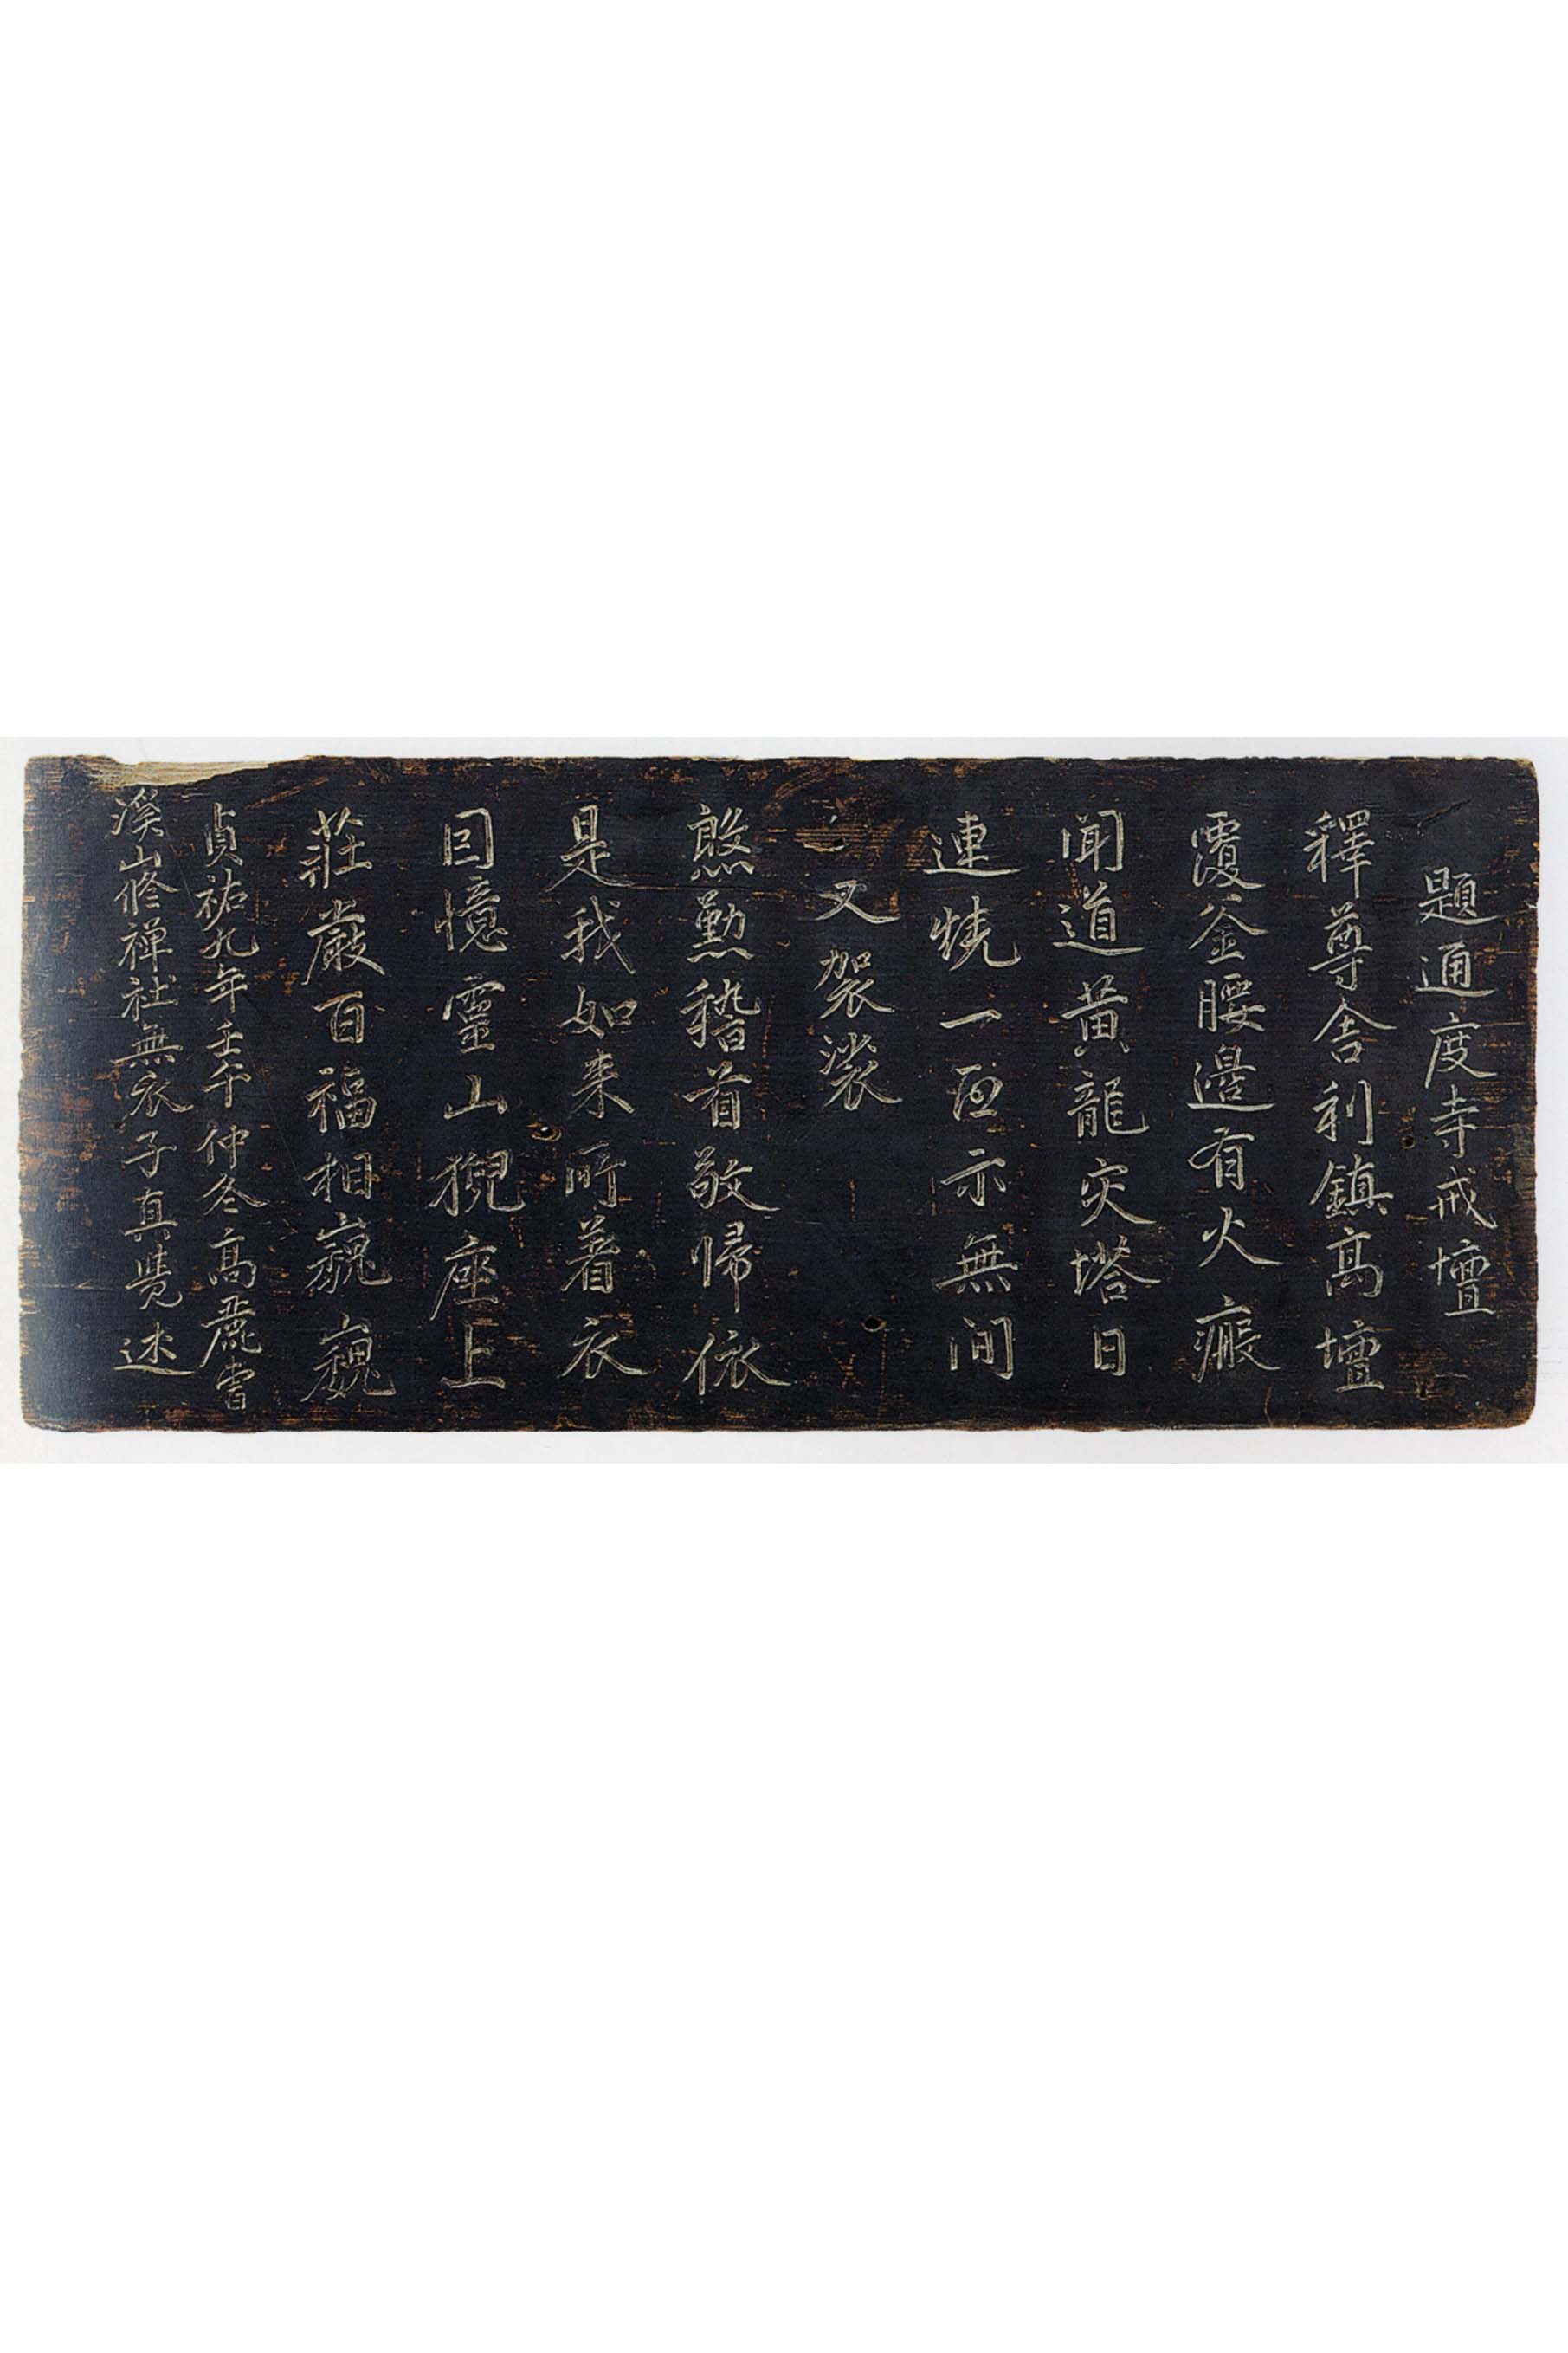 題通度寺戒壇
釋尊舍利鎮高壇
覆釜腰邊有火瘢
聞道黃龍灾塔日
連燒一面示無間
又袈裟
慇懃稽首敬歸依
是我如来所著衣
囙憶靈山猊座上
莊嚴百福相巍巍
貞祐九年壬午仲冬高麗曺
溪山修禅社無衣子真覺述